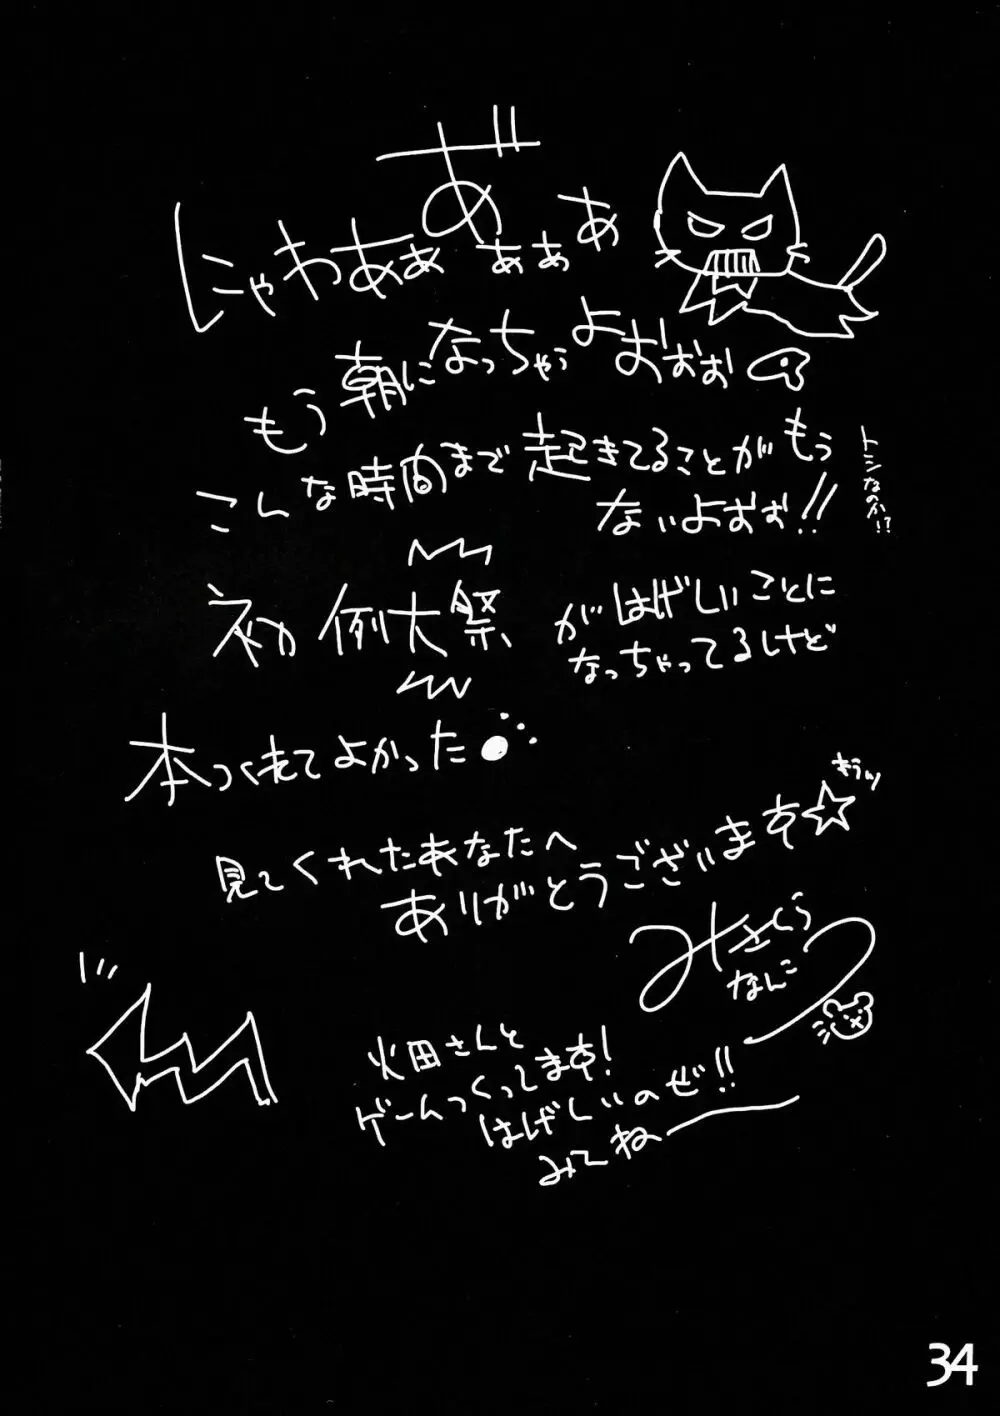 にゃわあぁあ"ぁぁあ
もう朝になっちゃうよおぉぉ
こんな時間まで起きてることがもう
ないよぉぉ!!
トシなのか!?
初例大祭
がはげしいことに
なっちゃってるけど
本つくれてよかった
見てくれたあなたへ
ありがとうございます☆
きらり
みさくら
なんこ
火田さんと
ゲームつくってます!
はげしいのぜ!!
みてねー
34